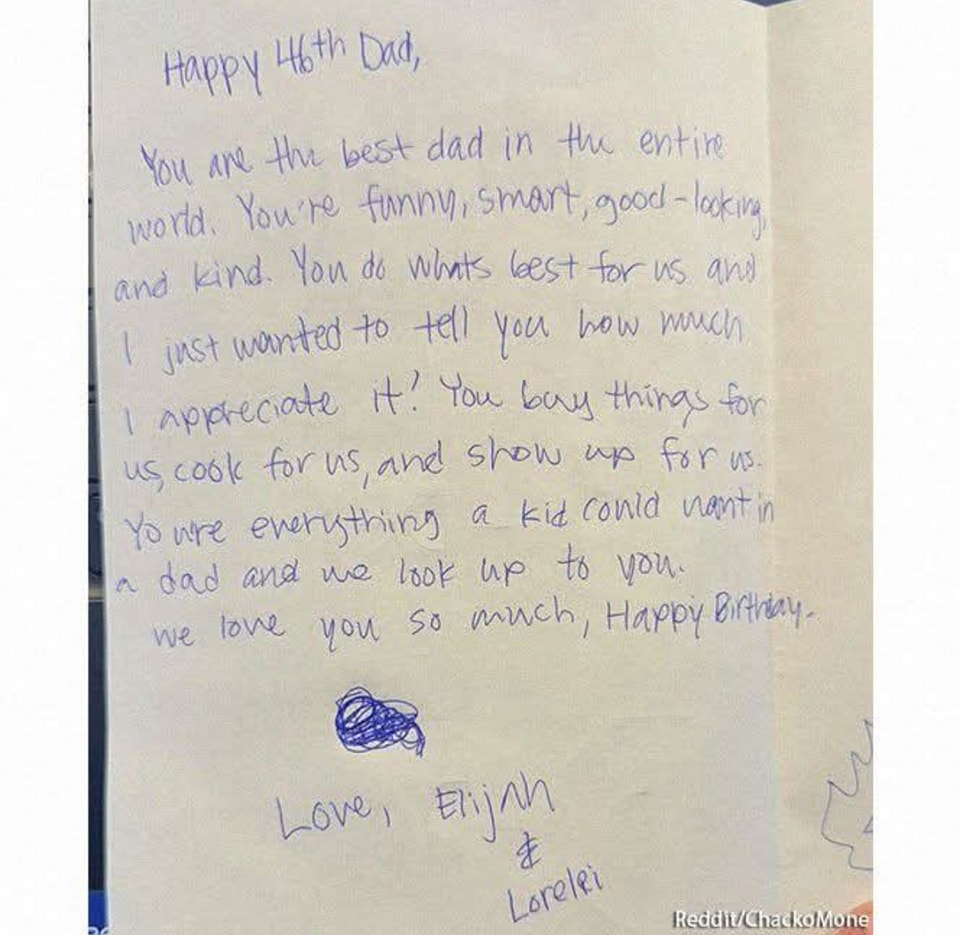 Happy 46th Dad,
You are the best dad in the entire
world. You're funny, smart, good-looking,
and kind. You do whats best for us and
I just wanted to tell you how much
I appreciate it! You buy things for
us, cook for us, and show up for us.
Youre everything a kid could want in
a dad and we look up to you.
We love you so much, Happy Birthday.
Love, Elijah
&
Lorelei
Reddit/ChackoMone